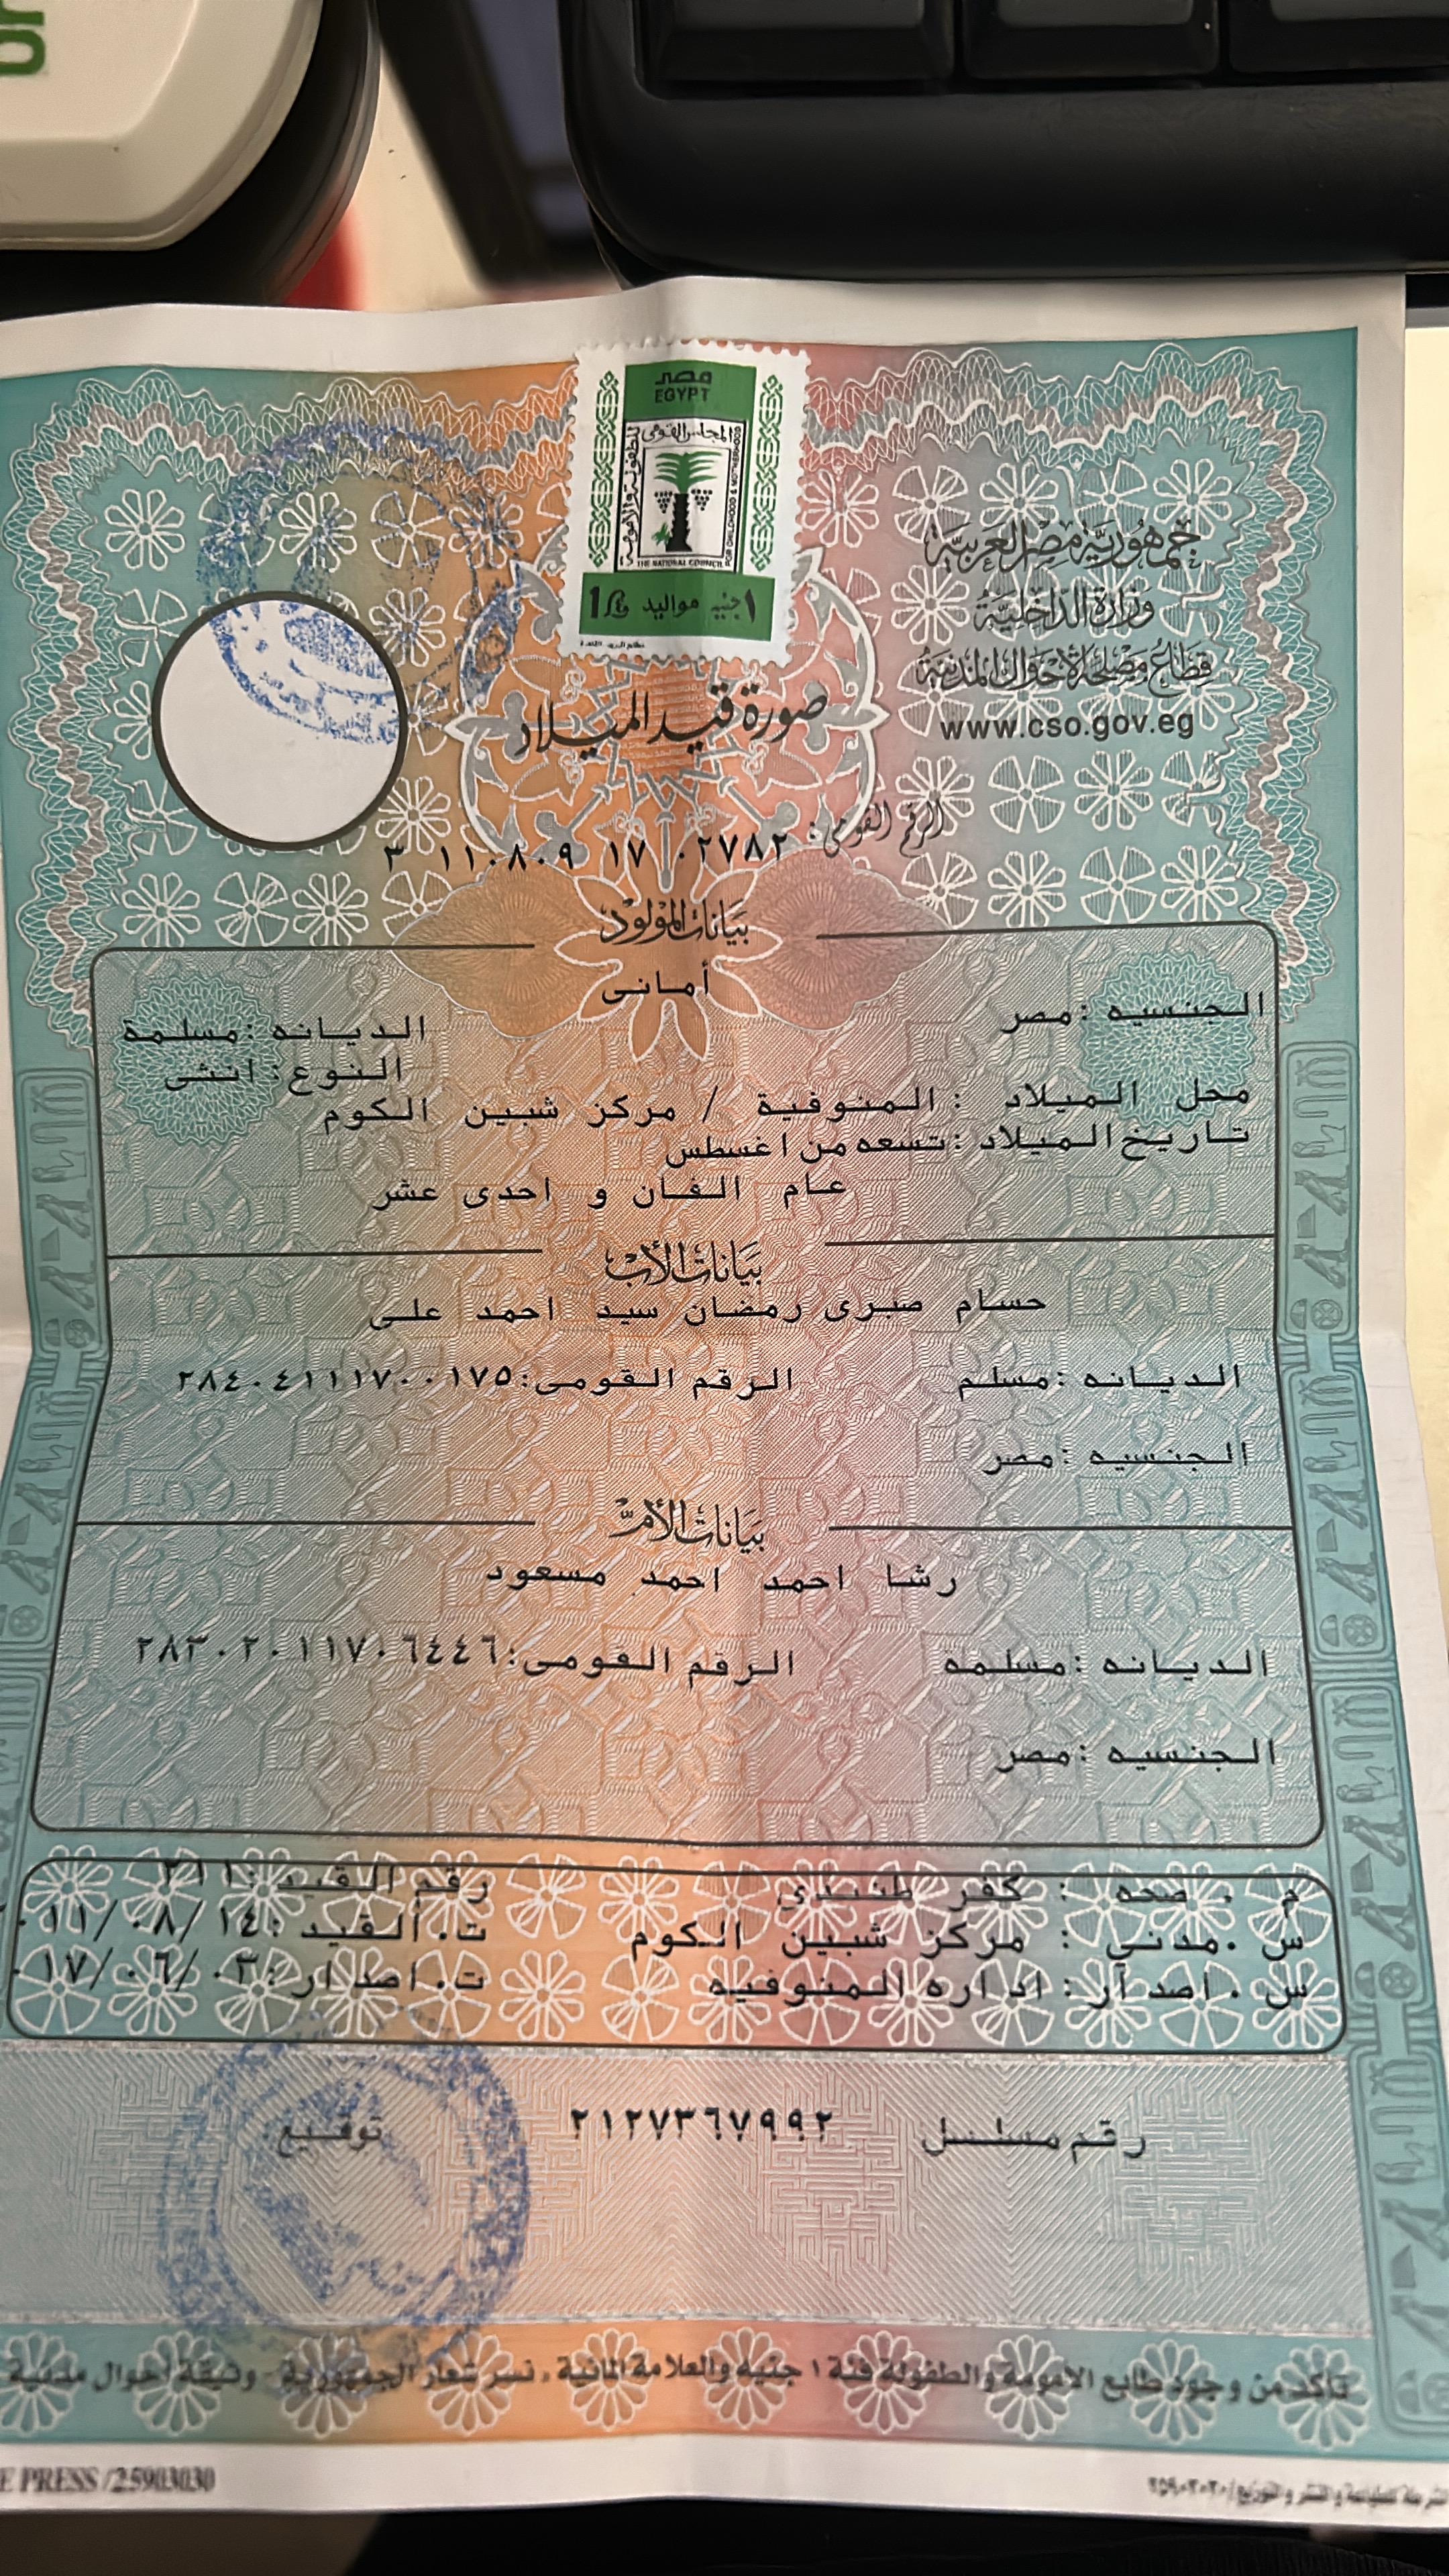 مصر
EGYPT
المجلس القومى
للطفولة والأمومة
FOR CHILDHOOD & MOTHERHOOD
THE NATIONAL COUNCIL
١ جنيه مواليد 1
جمهورية مصر العربية
وزارة الداخلية
قطاع مصلحة الأحوال المدنية
www.cso.gov.eg
صورة قيد الميلاد
الرقم القومى: ٣ ١١٠٨٠٩ ١٧ ٠٢٧٨٢
بيانات المولود
أمانى
الجنسيه :مصر
الديانه :مسلمة
النوع: انثى
محل الميلاد : المنوفية / مركز شبين الكوم
تاريخ الميلاد :تسعه من اغسطس
عام الفان و احدى عشر
بيانات الأب
حسام صبرى رمضان سيد احمد على
الديانه :مسلم الرقم القومى:٢٨٤٠٤١١١٧٠٠١٧٥
الجنسيه :مصر
بيانات الأم
رشا احمد احمد مسعود
الديانه :مسلمه الرقم القومى:٢٨٣٠٢٠١١٧٠٦٤٤٦
الجنسيه :مصر
م . صحه : كفر طنبدي رقم القيد :٢١١
س .مدني : مركز شبين الكوم ت. القيد :١٤/٠٨/٠١١
س .اصدار: اداره المنوفيه ت.اصدار :٠٣/٠٦/٠١٧
رقم مسلسل ٢١٢٧٣٦٧٩٩٢ توقيع
تأكد من وجود طابع الامومة والطفولة فئة ١ جنيه والعلامة المائية ، نسر شعار الجمهورية - وثيقة احوال مدنية
E PRESS /25903030
الشرطة للطباعة والنشر والتوزيع/٢٥٩٠٣٠٣٠